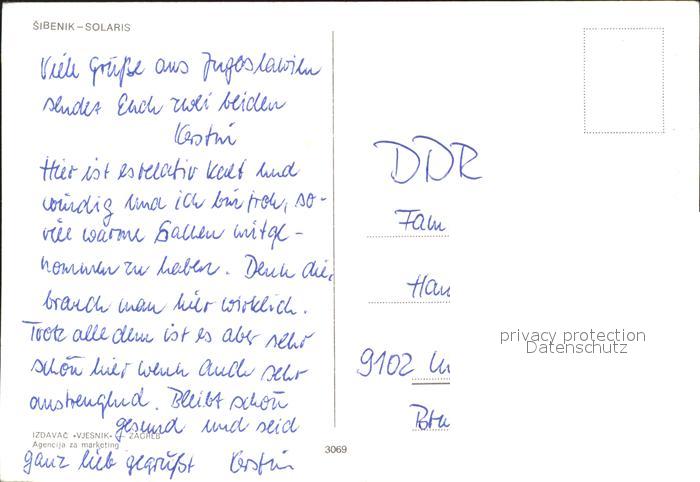 ŠIBENIK – SOLARIS
Viele Grüße aus Jugoslawien
sendet Euch zwei beiden
Kerstin
Hier ist es relativ kalt und
windig und ich bin froh, so-
viele warme Sachen mitge-
nommen zu haben. Denn die,
brauch man hier wirklich.
Trotz alledem ist es aber sehr
schön hier wenn auch sehr
anstrengend. Bleibt schön
gesund und seid
ganz lieb gegrüßt Kerstin
IZDAVAČ »VJESNIK« ZAGREB
Agencija za marketing
3069
DDR
Fam
Han
9102
privacy protection
Datenschutz